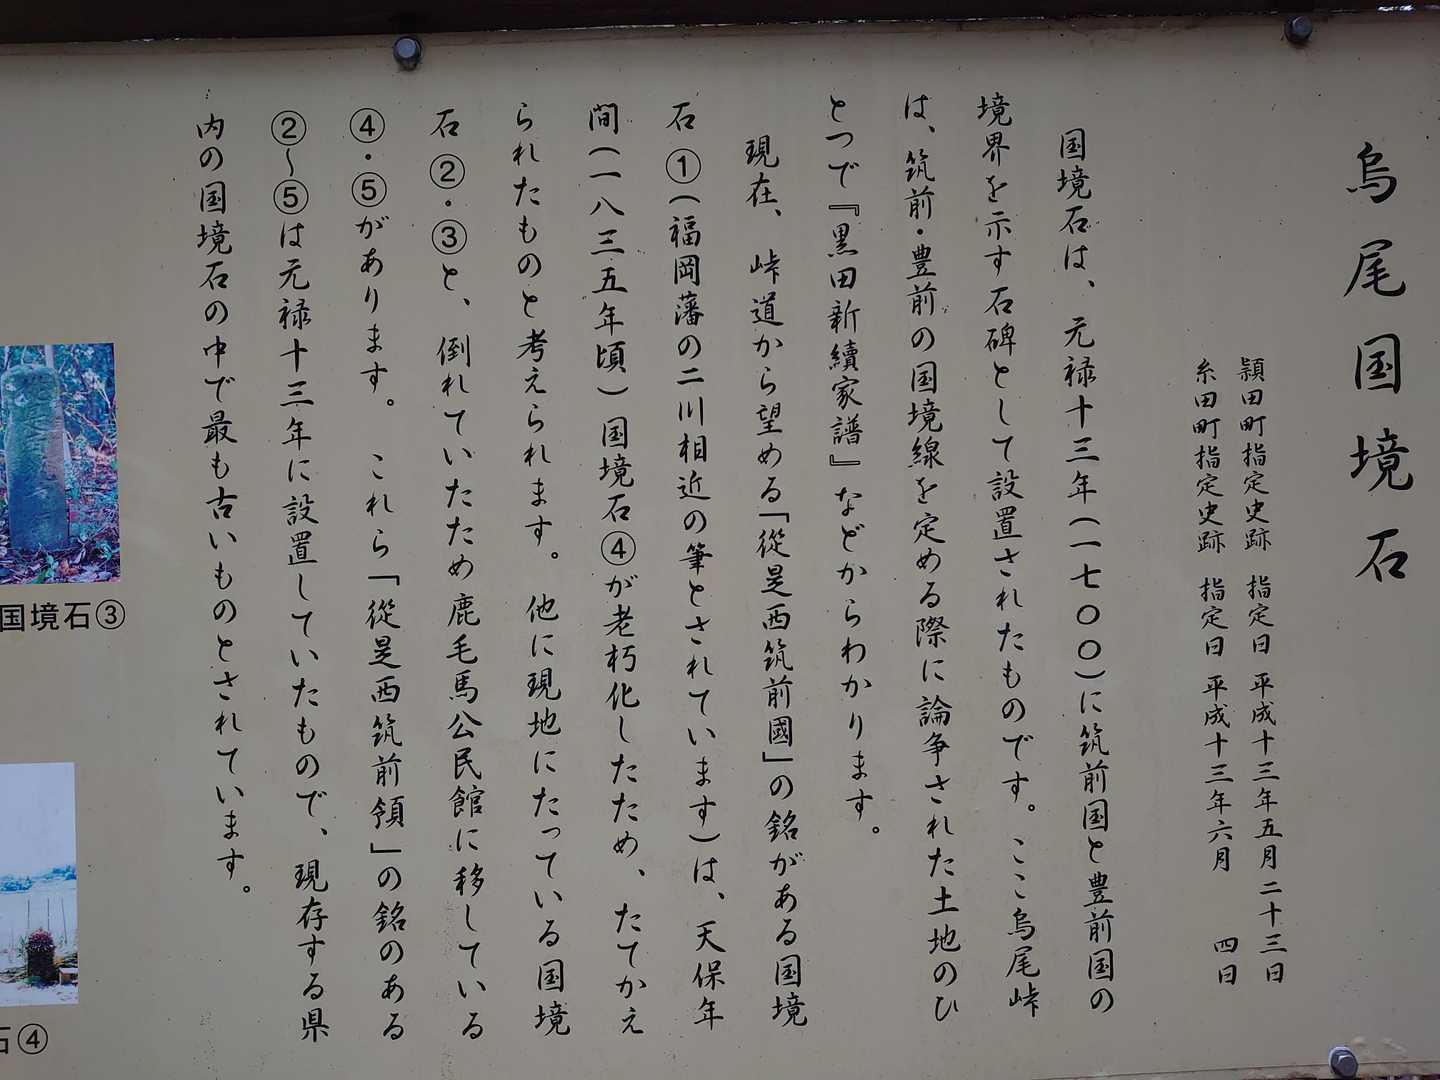 烏尾国境石
頴田町指定史跡 指定日 平成十三年五月二十三日
糸田町指定史跡 指定日 平成十三年六月 四日
国境石は、元禄十三年(一七〇〇)に筑前国と豊前国の
境界を示す石碑として設置されたものです。ここ烏尾峠
は、筑前・豊前の国境線を定める際に論争された土地のひ
とつで『黒田新續家譜』などからわかります。
現在、峠道から望める「從是西筑前國」の銘がある国境
石①(福岡藩の二川相近の筆とされています)は、天保年
間(一八三五年頃)国境石④が老朽化したため、たてかえ
られたものと考えられます。他に現地にたっている国境
石②・③と、倒れていたため鹿毛馬公民館に移している
④・⑤があります。これら「從是西筑前領」の銘のある
②〜⑤は元禄十三年に設置していたもので、現存する県
内の国境石の中で最も古いものとされています。
国境石③
石④